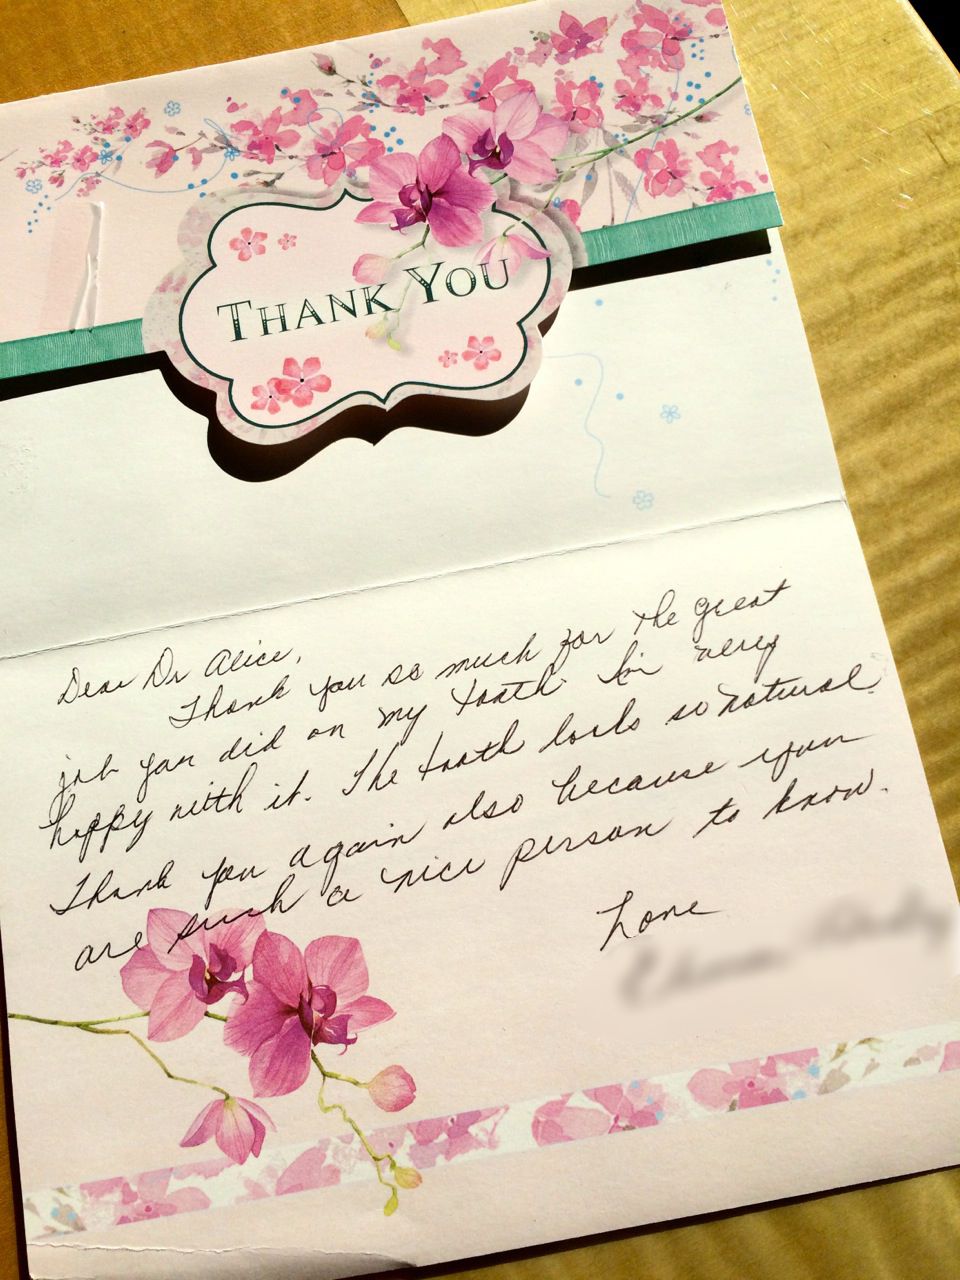 THANK YOU
Dear Dr Alice,
Thank you so much for the great
job you did on my tooth. I'm very
happy with it. The tooth looks so natural.
Thank you again also because you
are such a nice person to know.
Love